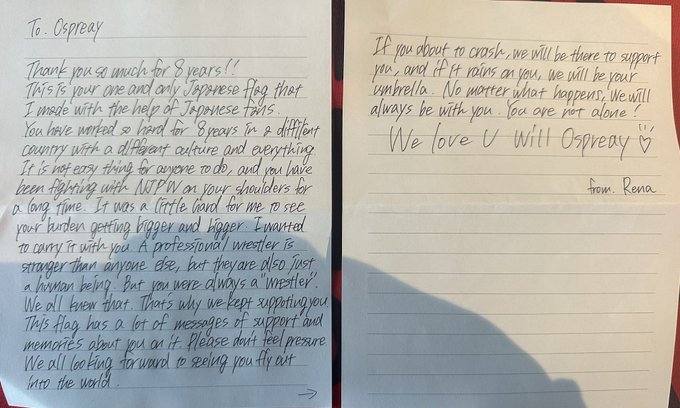 To. Ospreay
Thank you so much for 8 years!!
This is your one and only Japanese flag that
I made with the help of Japanese fans.
You have worked so hard for 8 years in a different
country with a different culture and everything.
It is not easy thing for anyone to do, and you have
been fighting with NJPW on your shoulders for
a long time. It was a little hard for me to see
your burden getting bigger and bigger. I wanted
to carry it with you. A professional wrestler is
stronger than anyone else, but they are also just
a human being. But you were always a "wrestler".
We all knew that. Thats why we kept suppoting you.
This flag has a lot of messages of support and
memories about you on it. Please don't feel pressure
We all looking forward to seeing you fly out
into the world.
→
If you about to crash, we will be there to support
you, and if it rains on you, we will be your
umbrella. No matter what happens, We will
always be with you. You are not alone!
We love U Will Ospreay ♡
from. Rena